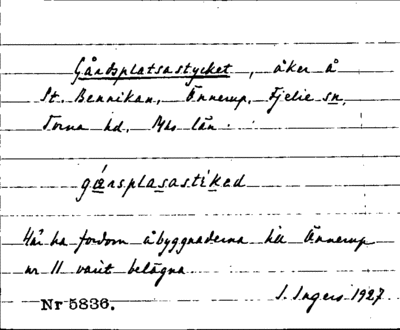 Gårdsplatsastycket, åker å
St. Bennikan, Önnerup, Fjelie sn,
Torna hd, Mhs län.
gårsplasastiked
Här ha fordom åbyggnaderna till Önnerup
nr 11 varit belägna.
I. Ingers 1927
Nr 5836.